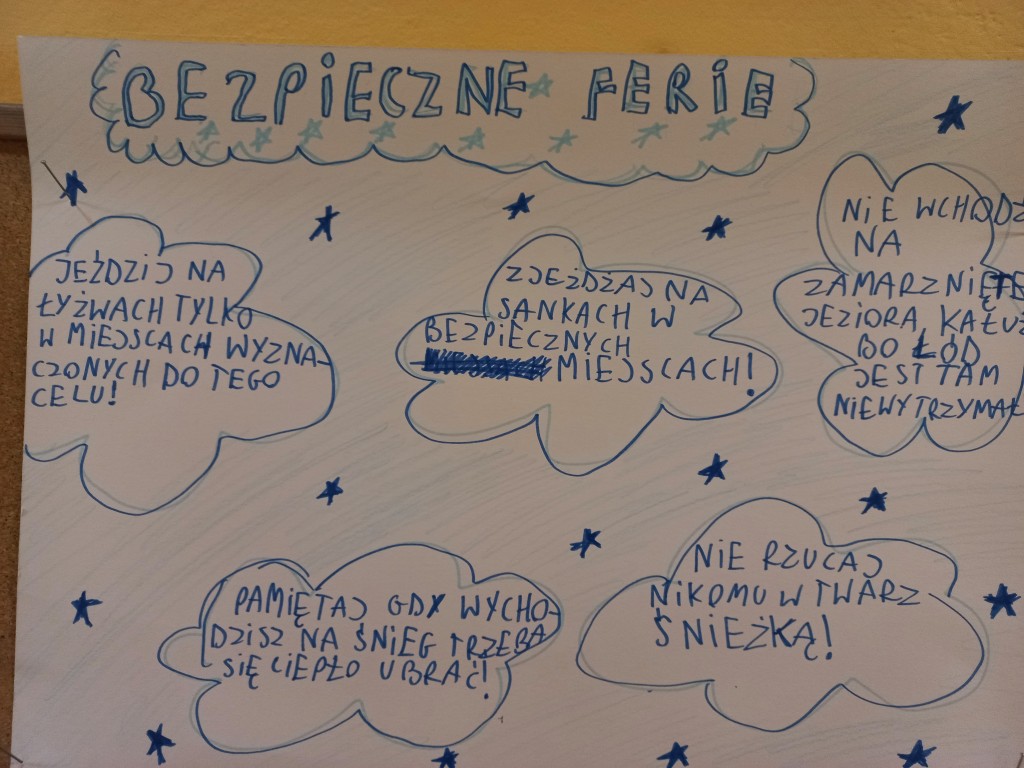 BEZPIECZNE FERIE
JEŹDZIJ NA
ŁYŻWACH TYLKO
W MIEJSCACH WYZNA-
CZONYCH DO TEGO
CELU!
ZJEŻDŻAJ NA
SANKACH W
BEZPIECZNYCH
MIEJSCACH!
NIE WCHODŹ
NA
ZAMARZNIĘTE
JEZIORA, KAŁUŻ
BO ŁÓD
JEST TAM
NIEWYTRZYMAŁ
PAMIĘTAJ GDY WYCHO-
DZISZ NA ŚNIEG TRZEBA
SIĘ CIEPŁO UBRAĆ!
NIE RZUCAJ
NIKOMU W TWARZ
ŚNIEŻKĄ!